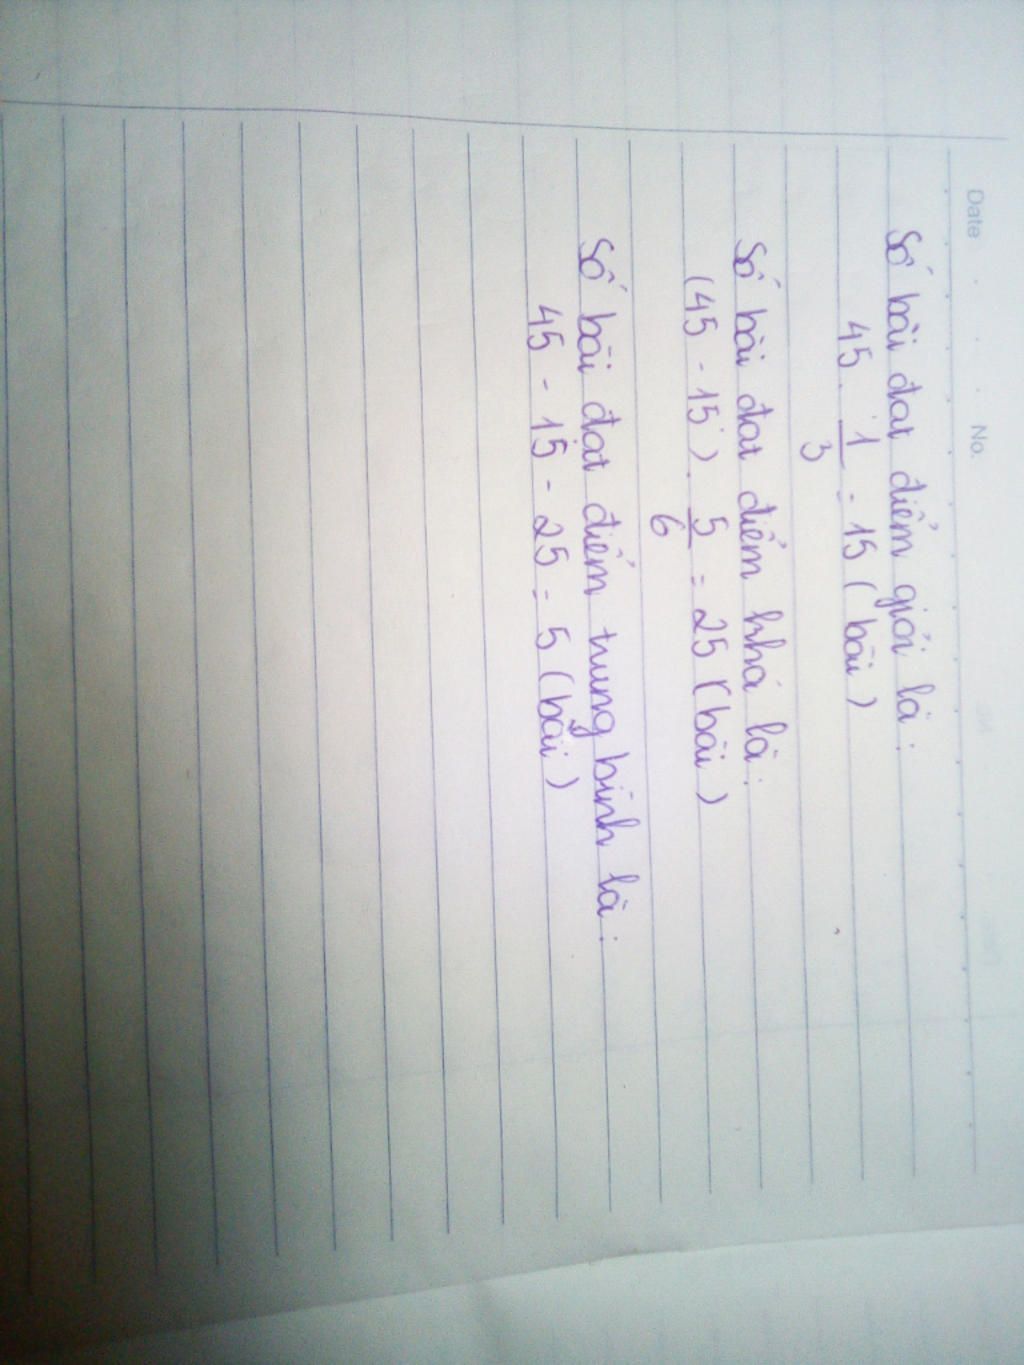 Date No.
Số bài đạt điểm giỏi là:
45 . 1/3 = 15 (bài)
Số bài đạt điểm khá là:
(45 - 15) . 5/6 = 25 (bài)
Số bài đạt điểm trung bình là:
45 - 15 - 25 = 5 (bài)